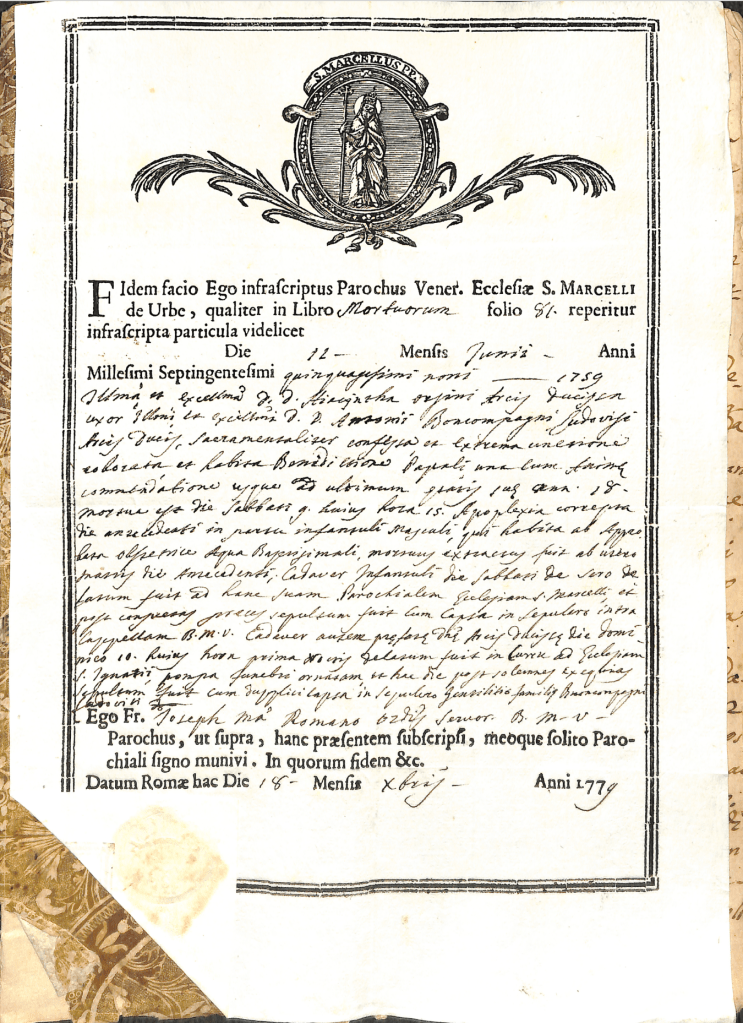 S. MARCELLUS PP.
FIdem facio Ego infrascriptus Parochus Vener. Ecclesiæ S. MARCELLI
de Urbe, qualiter in Libro Mortuorum folio 81. reperitur
infrascripta particula videlicet
Die 11 - Mensis Junii - Anni
Millesimi Septingentesimi quinquagesimi noni —— 1759
Illma et excellma D. D. Hiacyntha Orsini Arcis Ducissa
uxor Illmi et excellmi D. D. Antonii Boncompagni Ludovisi
Arcis Ducis, Sacramentaliter confessa et extrema unctione
roborata et habita Benedictione Papali una cum Animę
commendatione usque ad ultimum suę ann. 18-
mortua est die Sabbati 9. huius hora 15. Apoplexia correpta
die antecedenti in partu infantuli Masculi, qui habita ab Appro
bata obsetrice Aqua Baptismali, mortuus extractus fuit ab utero
matris die Antecedenti, Cadaver Infantuli die Sabbati de sero de
latum fuit ad hanc suam Parochialem Ecclesiam S. Marcelli, et
post consuetas preces sepultum fuit cum Capsa in sepulcro intra
Cappellam B. M. V. Cadaver autem Dnę Arcis Ducissę die Domi
nico 10. huius hora prima Noctis delatum fuit in Curru ad Ecclesiam
S. Ignatii pompa funebri ornatam et hac die post solemnes Exequias
sepultum fuit cum dupplici capsa in sepulcro Gentilitio familię Buoncompagni
Ludovisi
Ego Fr. Joseph Ma Romano Ordis Servor. B. M. V -
Parochus, ut supra, hanc præsentem subscripsi, meoque solito Paro-
chiali signo munivi. In quorum fidem &c.
Datum Romæ hac Die 18 - Mensis Xbris - Anni 1779